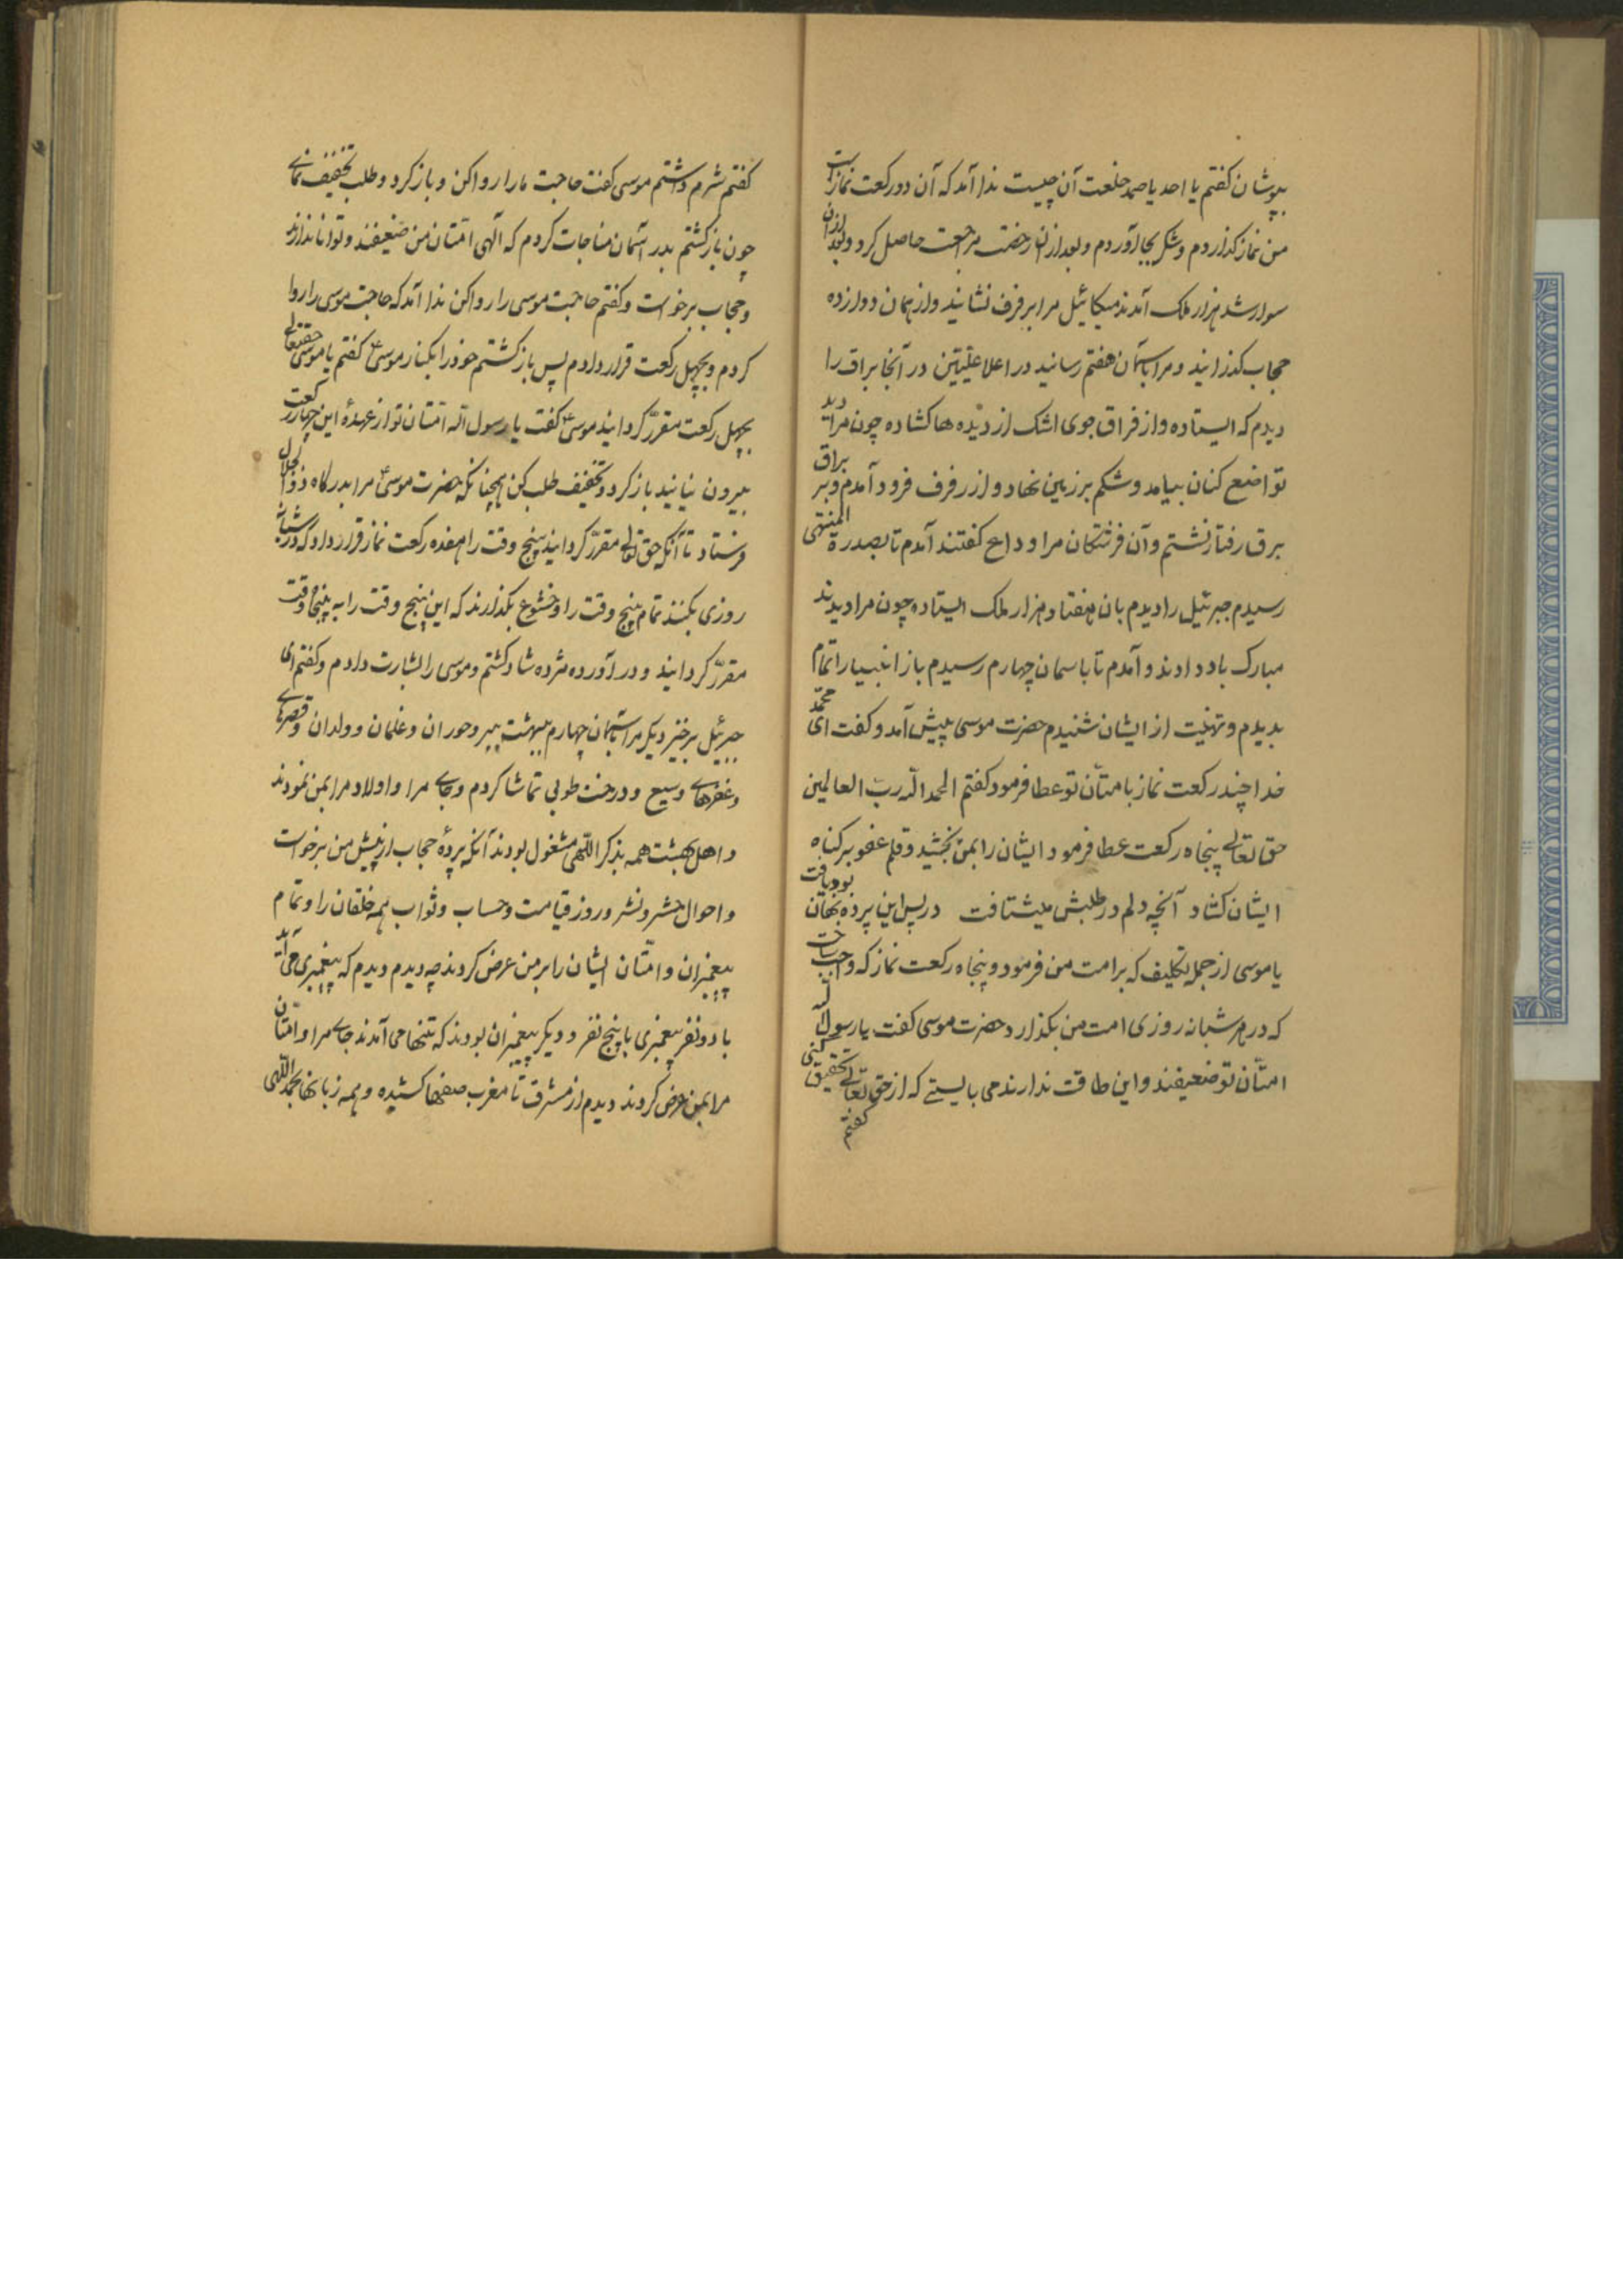 بپوشان کفتم یا احد یا صمد خلعت آن چیست ندا آمد که آن دو رکعت نماز است
من نماز کذاردم و شکر بجا آوردم و بعد از آن رخصت مراجعت حاصل کرد و بعد از آن
سوار شد هزار ملک آمدند میکائیل مرا بر فرف نشانید و از همان دوازده
حجاب کذرانید و مرا باسمان هفتم رسانید در اعلا علیّین در آنجا براق را
دیدم که ایستاده و از فراق جوی اشک از دیده ها کشاده چون مرا دید
تواضع کنان بیامد و شکم بر زمین نهاد و از رفرف فرود آمدم و بر براق
برق رفتار نشتم و آن فرشتکان مرا وداع کفتند آمدم تا بصدرة المنتهی
رسیدم جبرئیل را دیدم بان هفتاد هزار ملک ایستاده چون مرا دیدند
مبارک باد دادند و آمدم تا باسمان چهارم رسیدم باز انبیا را تمام
بدیدم و تهنیت از ایشان شنیدم حضرت موسی پیش آمد و کفت ای محمّد
خدا چند رکعت نماز بامتّان تو عطا فرمود کفتم الحمد الله ربّ العالمین
حق تعالی پنجاه رکعت عطا فرمود ایشان را بمن بخشید و قلم عفو بر کناه
ایشان کشاد آنچه دلم در طلبش میشتافت در پس این پرده نهان بود یافت
یا موسی از جمله تکلیف که بر امت من فرمود و پنجاه رکعت نماز که واجب ساخت
که در هر شبانه روزی امت من بکذارد حضرت موسی کفت یا رسول الله
امتّان تو ضعیفند و این طاقت ندارند می بایستے که از حق تعالی تخفیف کنی
کفتم
کفتم شرم داشتم موسی کفت حاجت ما را روا کن و باز کرد و طلب تخفیف نمای
چون باز کشتم بدر آسمان مناجات کردم که الهی امّتان من ضعیفند و توانا ندارند
و حجاب برخواست و کفتم حاجت موسی را روا کن ندا آمد که حاجت موسی را روا
کردم و بچهل رکعت قرار دادم پس باز کشتم خود را بکنار موسیٰ کفتم یا موسیٰ حقتعالی
بچهل رکعت مقرّر کردانید موسیٰ کفت یا رسول الله امّتان تو از عهدۀ این چهل رکعت
بیرون نیایند باز کرد و تخفیف طلب کن همچنانکه حضرت موسیٰ مرا بدرکاه ذوالجلال
فرستاد تا آنکه حق تعالی مقرّر کردانید پنج وقت را هفده رکعت نماز قرار داد که در شبانه
روزی بکنند تمام پنج وقت را و خشوع بکذارند که این پنج وقت را به پنجاه وقت
مقرّر کردانید و در آورده مژده شاد کشتم و موسی را بشارت دادم و کفتم ای
جبرئیل برخیز دیکر مرا باسمان چهارم ببهشت ببر و حوران و غلمان و ولدان و قصرهای
و غرفهای وسیع و درخت طوبی تماشا کردم و جای مرا و اولاد مرا بمن نمودند
و اهل بهشت همه بذکر اللّهی مشغول بودند آنکه پردۀ حجاب از پیش من برخواست
و احوال حشر و نشر و روز قیامت و حساب و ثواب همه خلقان را و تمام
پیغمبران و امّتان ایشان را بر من عرض کردند چه دیدم دیدم که پیغمبری می آید
با دو نفر پیغمبری با پنج نفر و دیکر پیغمبران بودند که تنها می آمدند جای مرا و امّتان
مرا بمن عرض کردند دیدم از مشرق تا مغرب صفها کشیده و همه زبانها بحمد اللّهی